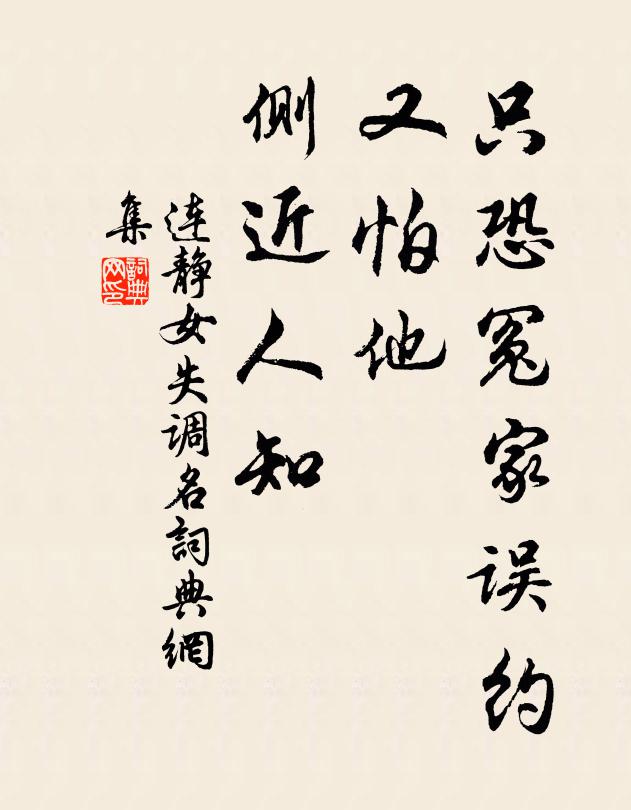 只恐冤家误约
又怕他
侧近人知
连静女失调名詞典網
集
詞典
网印